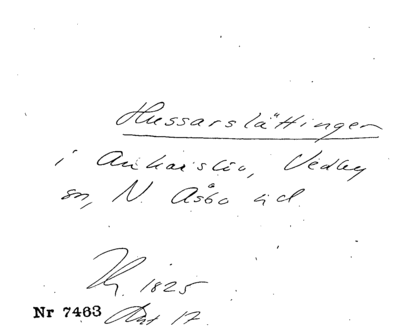 Hussarslättingen
i Ankarslöv, Vedby
sn, N. Åsbo hd.
Hg. 1825
Nr 7463 Avt 17